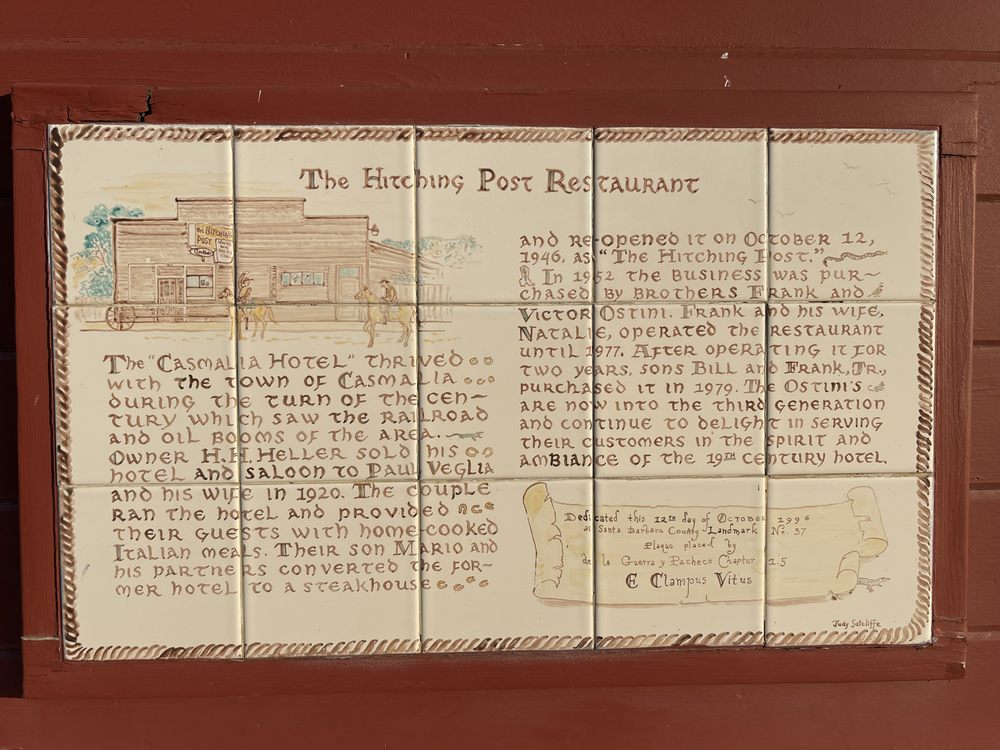 The Hitching Post Restaurant
the Hitching
Post
The "Casmalia Hotel" thrived
with the town of Casmalia
during the turn of the cen-
tury which saw the railroad
and oil booms of the area.
Owner H.H. Heller sold his
hotel and saloon to Paul Veglia
and his wife in 1920. The couple
ran the hotel and provided
their guests with home-cooked
Italian meals. Their son Mario and
his partners converted the for-
mer hotel to a steakhouse
and re-opened it on October 12,
1946, as "The Hitching Post."
In 1952 the business was pur-
chased by brothers Frank and
Victor Ostini. Frank and his wife,
Natalie, operated the restaurant
until 1977. After operating it for
two years, sons Bill and Frank, Jr.,
purchased it in 1979. The Ostini's
are now into the third generation
and continue to delight in serving
their customers in the spirit and
ambiance of the 19th century hotel.
Dedicated this 12th day of October 1996
as Santa Barbara County Landmark No. 37
Plaque placed by
de la Guerra y Pacheco Chapter 1.5
E Clampus Vitus
Judy Sutcliffe